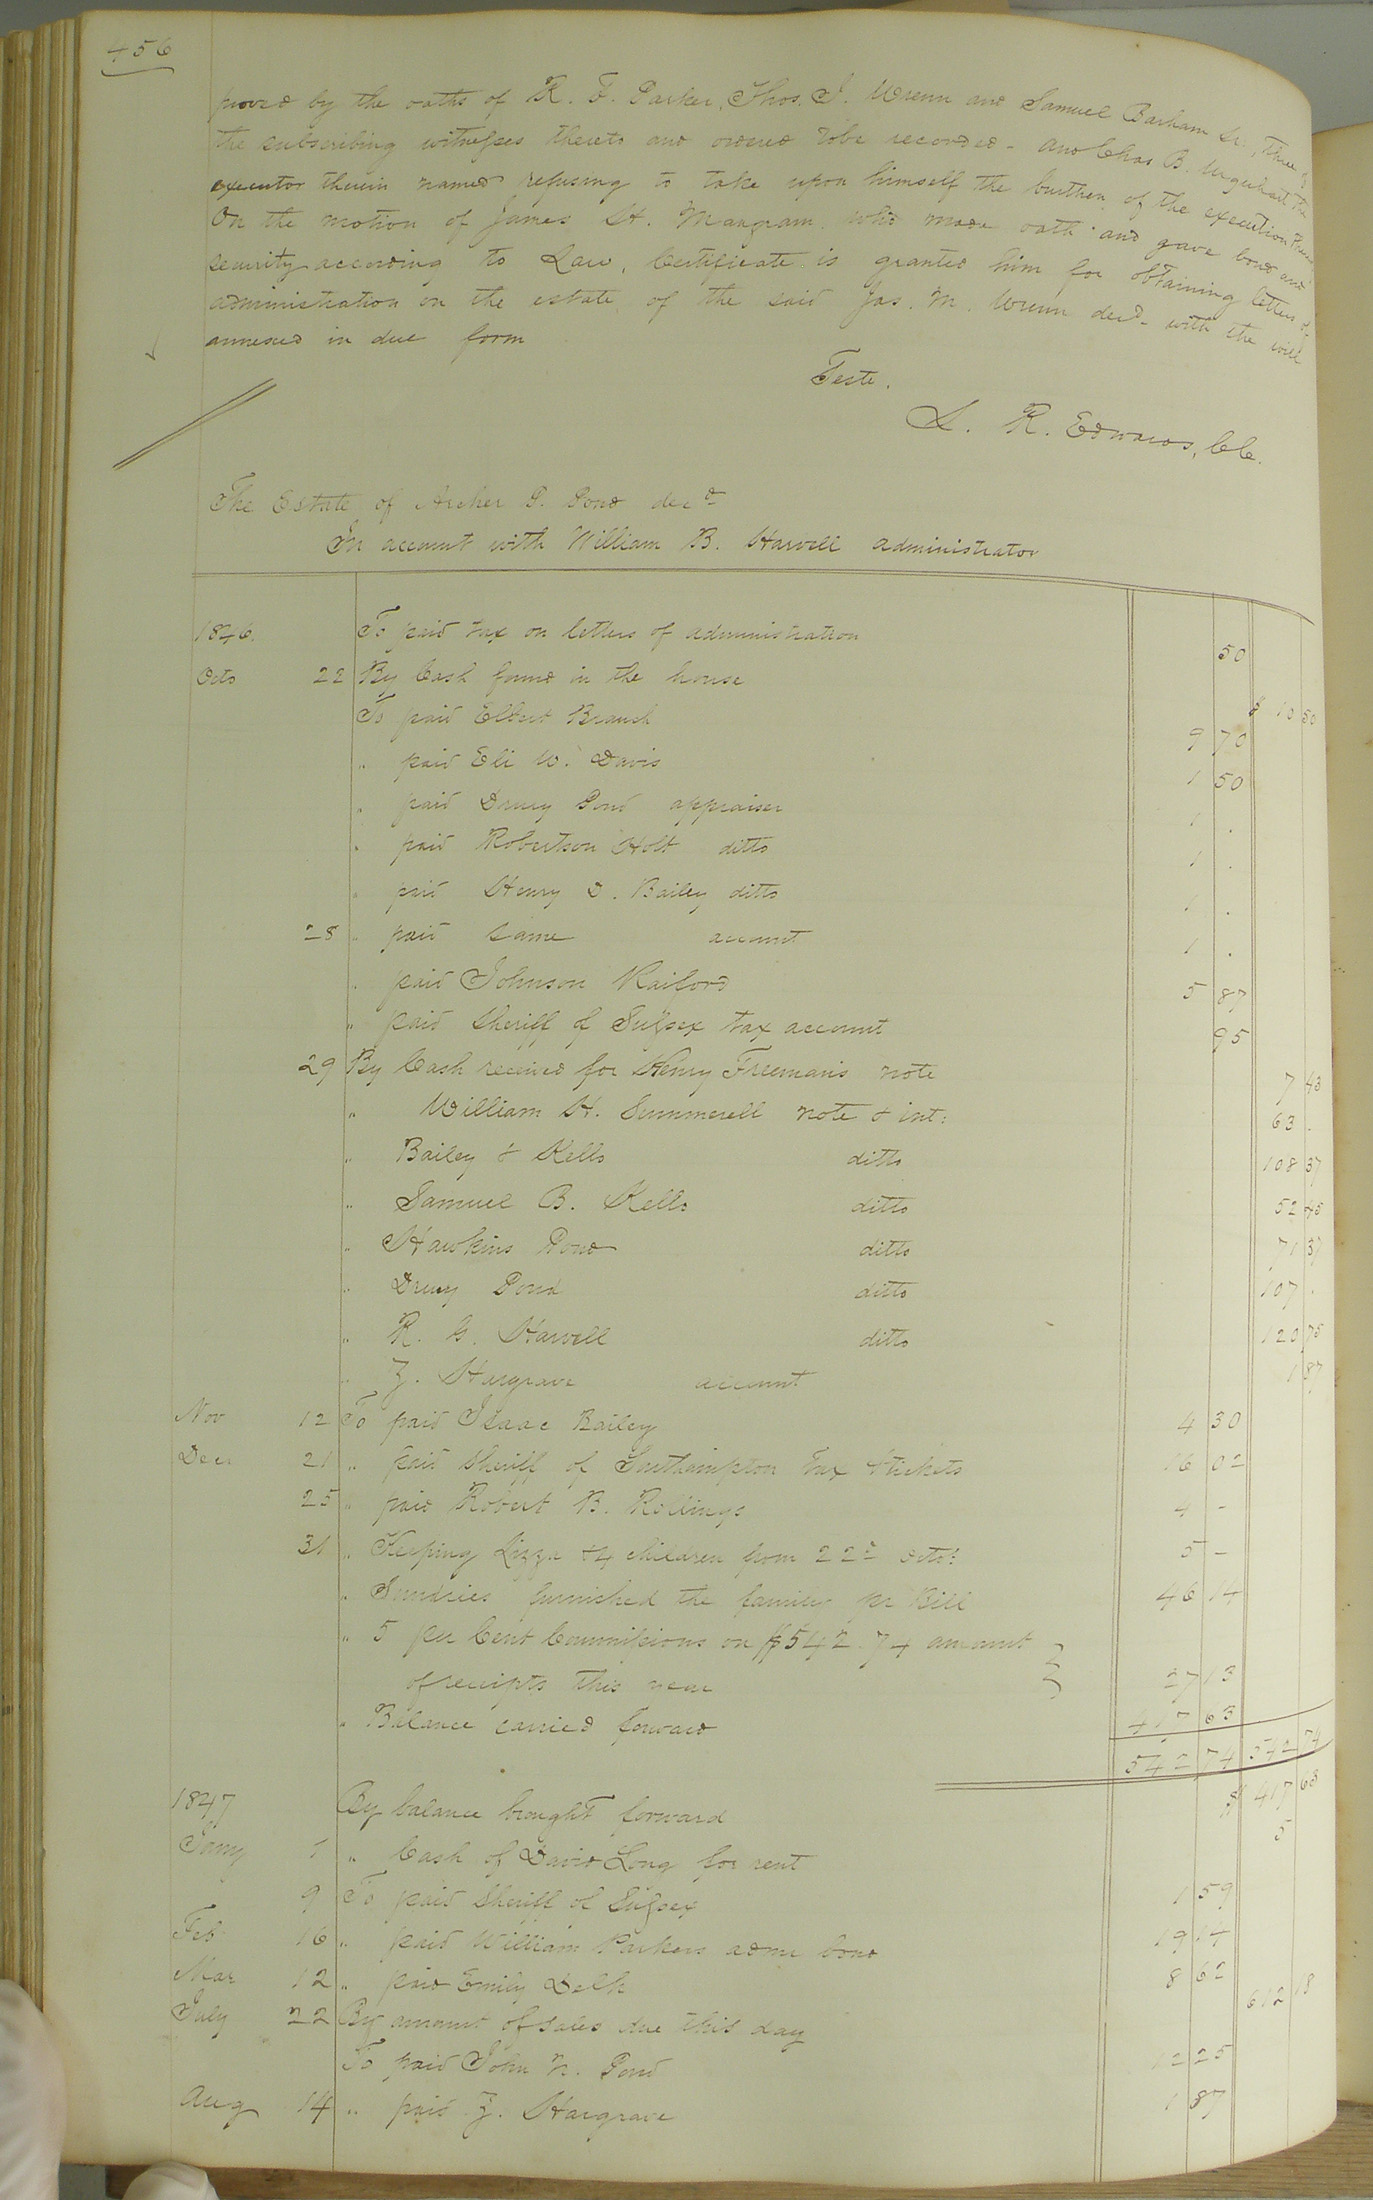 456
proved by the oaths of R. F. Parker, Thos. J. Wrenn and Samuel Barham Sr, three of
the subscribing witnesses thereto and ordered tobe recorded - And Chas B. Urquhart the
executor therein named refusing to take upon himself the burthen of the execution thereof
On the motion of James H. Mangram who made oath and gave bond and
security according to Law, Certificate is granted him for obtaining letters of
administration on the estate of the said Jas. M. Wrenn decd- with the will
annexed in due form
Teste.
L. R. Edwards, Cle.
The Estate of Archer P. Pond decd
In account with William B. Harvell administrator
1846. To paid tax on letters of administration 50
Octo 22 By Cash found in the house $ 10 50
To paid Elbert Branch 9 70
" paid Eli W. Davis 1 50
" paid Drury Pond appraiser 1 .
" paid Robertson Holt ditto 1 .
" paid Henry D. Bailey ditto 1 .
28 " paid same account 1 .
" paid Johnson Raiford 5 87
" paid Sheriff of Sussex tax account 95
29 By Cash received for Henry Freeman's note 7 43
" William H. Summerell note & int: 63 .
" Bailey & Kello ditto 108 37
" Samuel B. Kello ditto 52 45
" Hawkins Pond ditto 71 37
" Drury Pond ditto 107 .
" R. G. Harvell ditto 120 75
" Z. Hargrave account 1 87
Nov 12 To paid Isaac Bailey 4 30
Decr 21 " paid Sheriff of Southampton tax tickets 16 02
25 " paid Robert B. Rollings 4 -
31 " Keeping Lizza & 4 children from 22d Octo: 5 -
" Sundries furnished the family pr Bill 46 14
" 5 per Cent Commissions on $542.74 amount
of receipts this year 27 13
" Balance carried forward 417 63
542 74 542 74
1847 By balance brought forward $ 417 63
Jany 1 " Cash of David Long for rent 5
9 To paid Sheriff of Sussex 1 59
Feb 16 " paid William Parkers adme bond 19 14
Mar 12 " paid Emily Delk 8 62
July 22 By amount of sales due this day 612 18
To paid John N. Pond 12 25
Aug 14 " paid Z. Hargrave 1 87